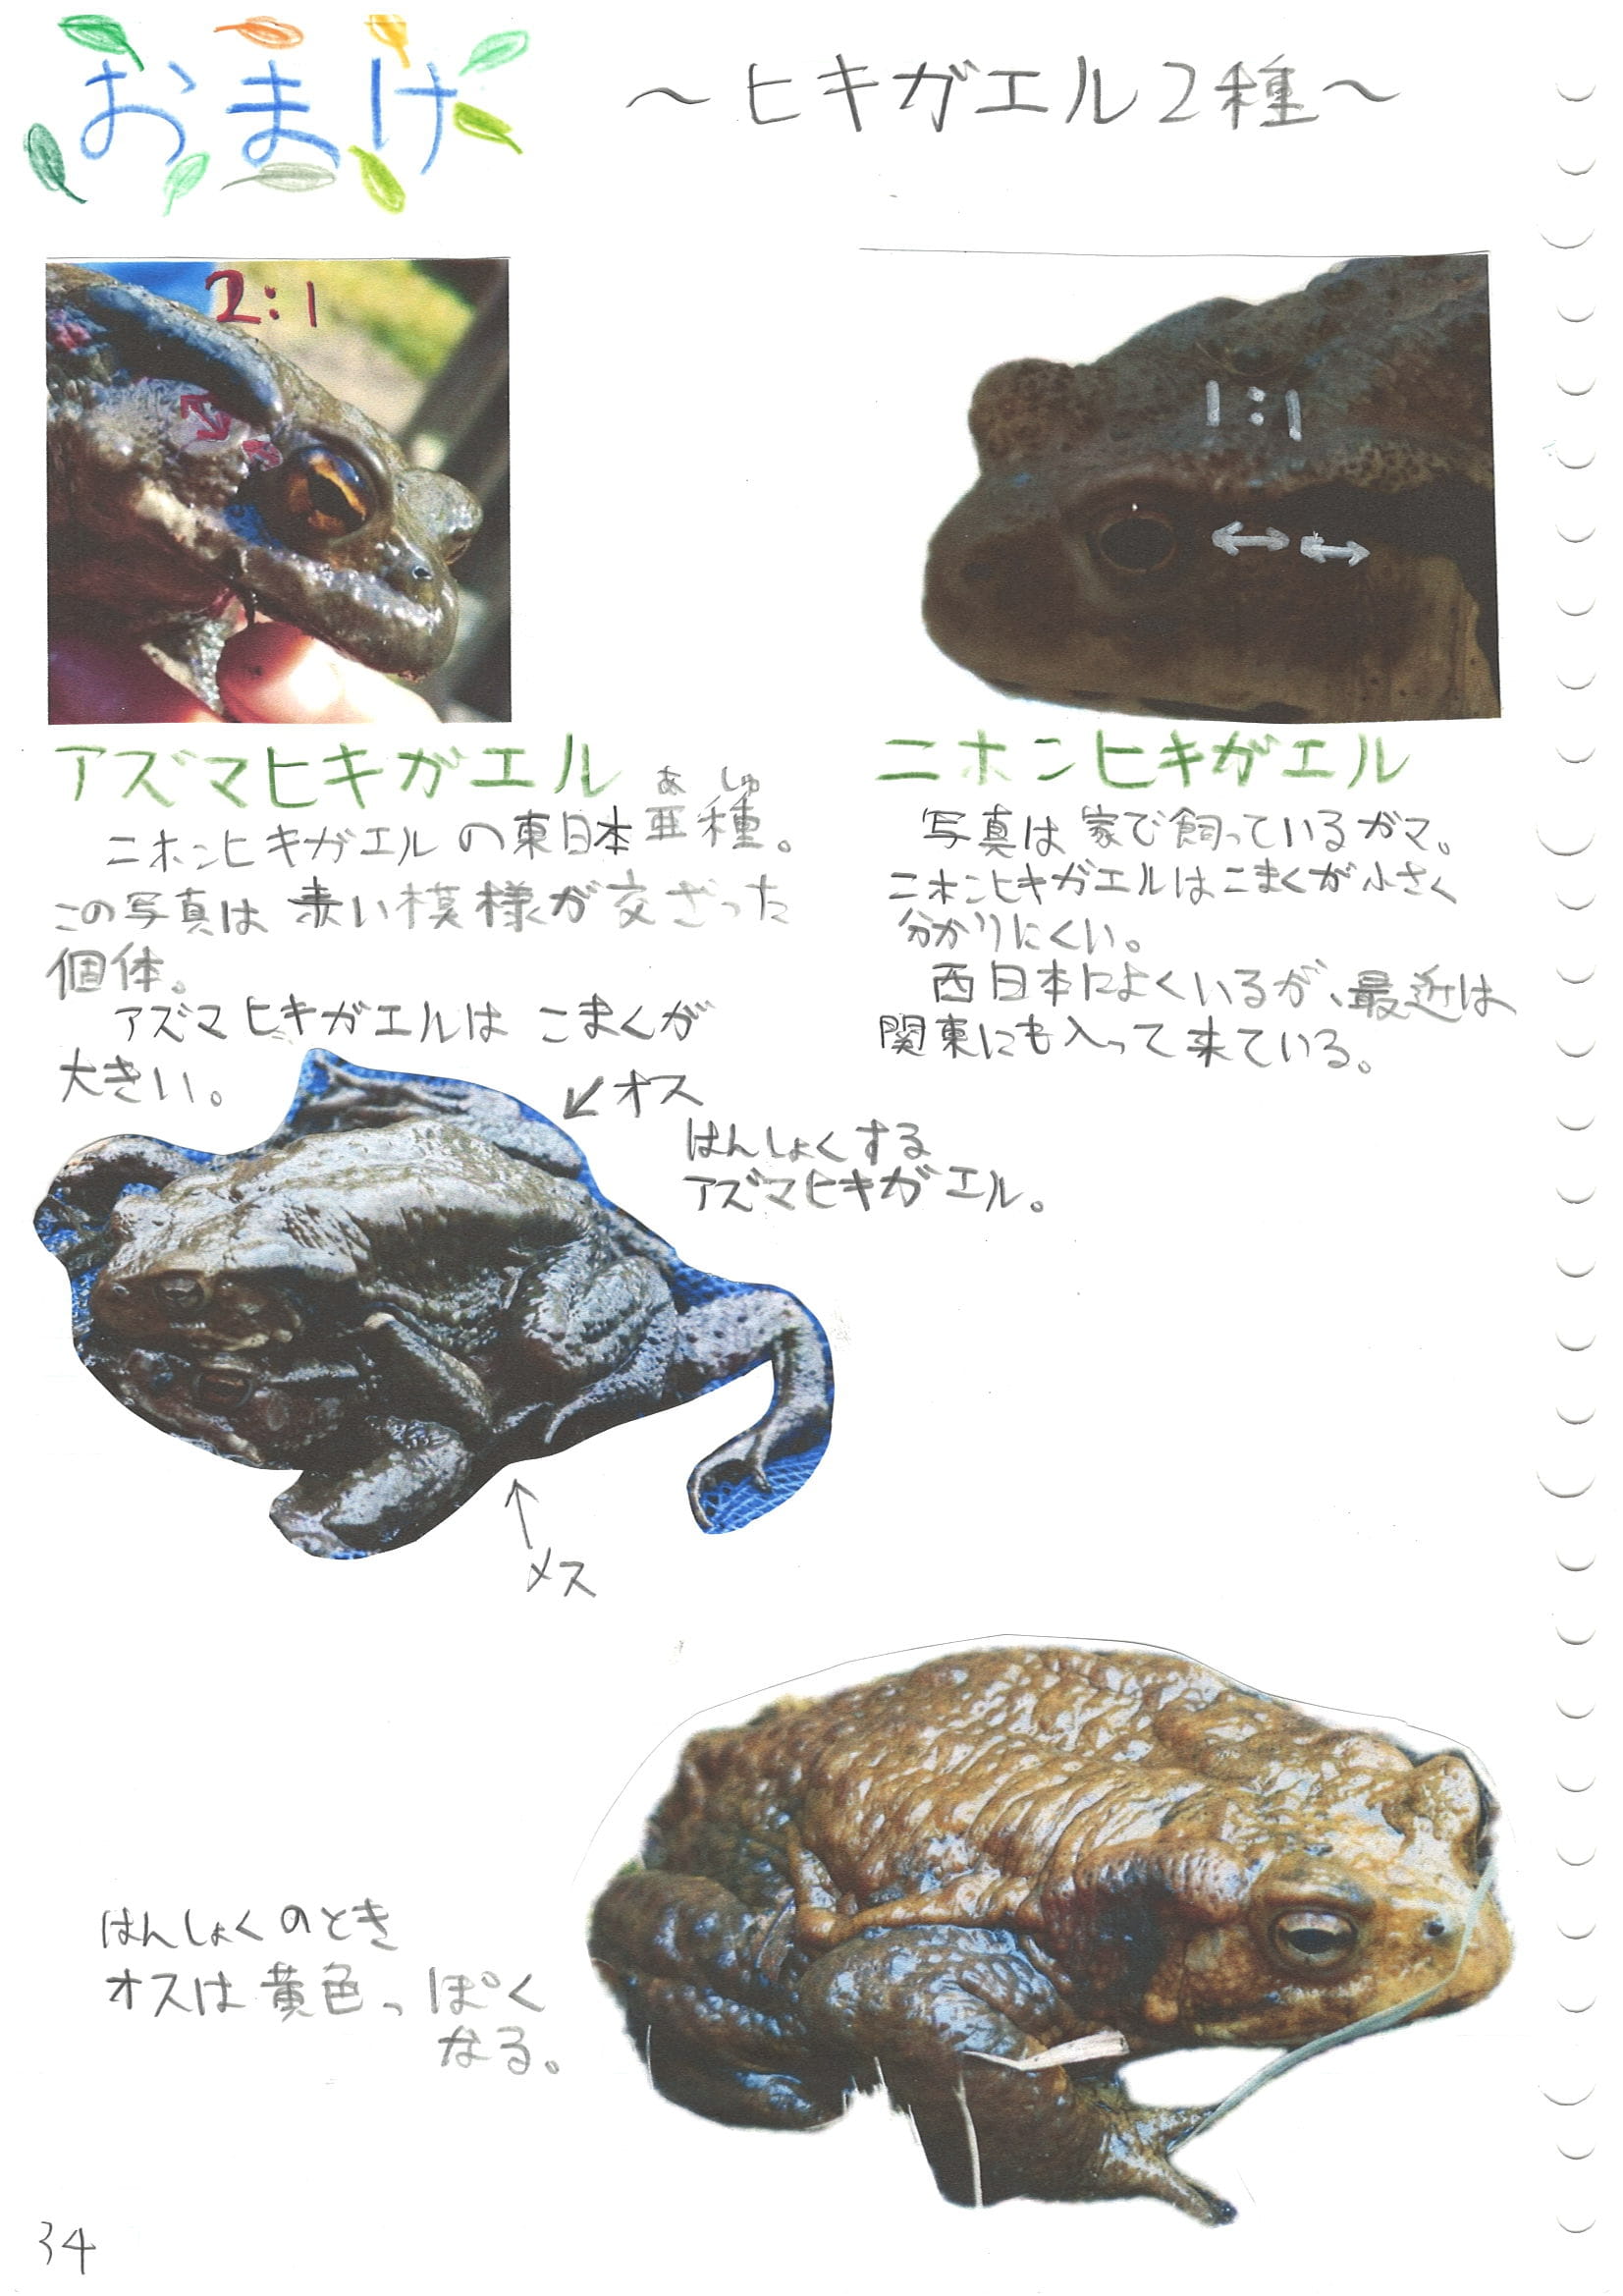 おまけ
～ヒキガエル2種～
2:1
1:1
アズマヒキガエル
ニホンヒキガエルの東日本亜種。
あしゅ
この写真は赤い模様が交ざった
個体。
アズマヒキガエルは こまくが
大きい。
ニホンヒキガエル
写真は家で飼っているガマ。
ニホンヒキガエルはこまくが小さく
分かりにくい。
西日本によくいるが、最近は
関東にも入って来ている。
↙オス
はんしょくする
アズマヒキガエル。
↑
メス
はんしょくのとき
オスは黄色っぽく
なる。
34